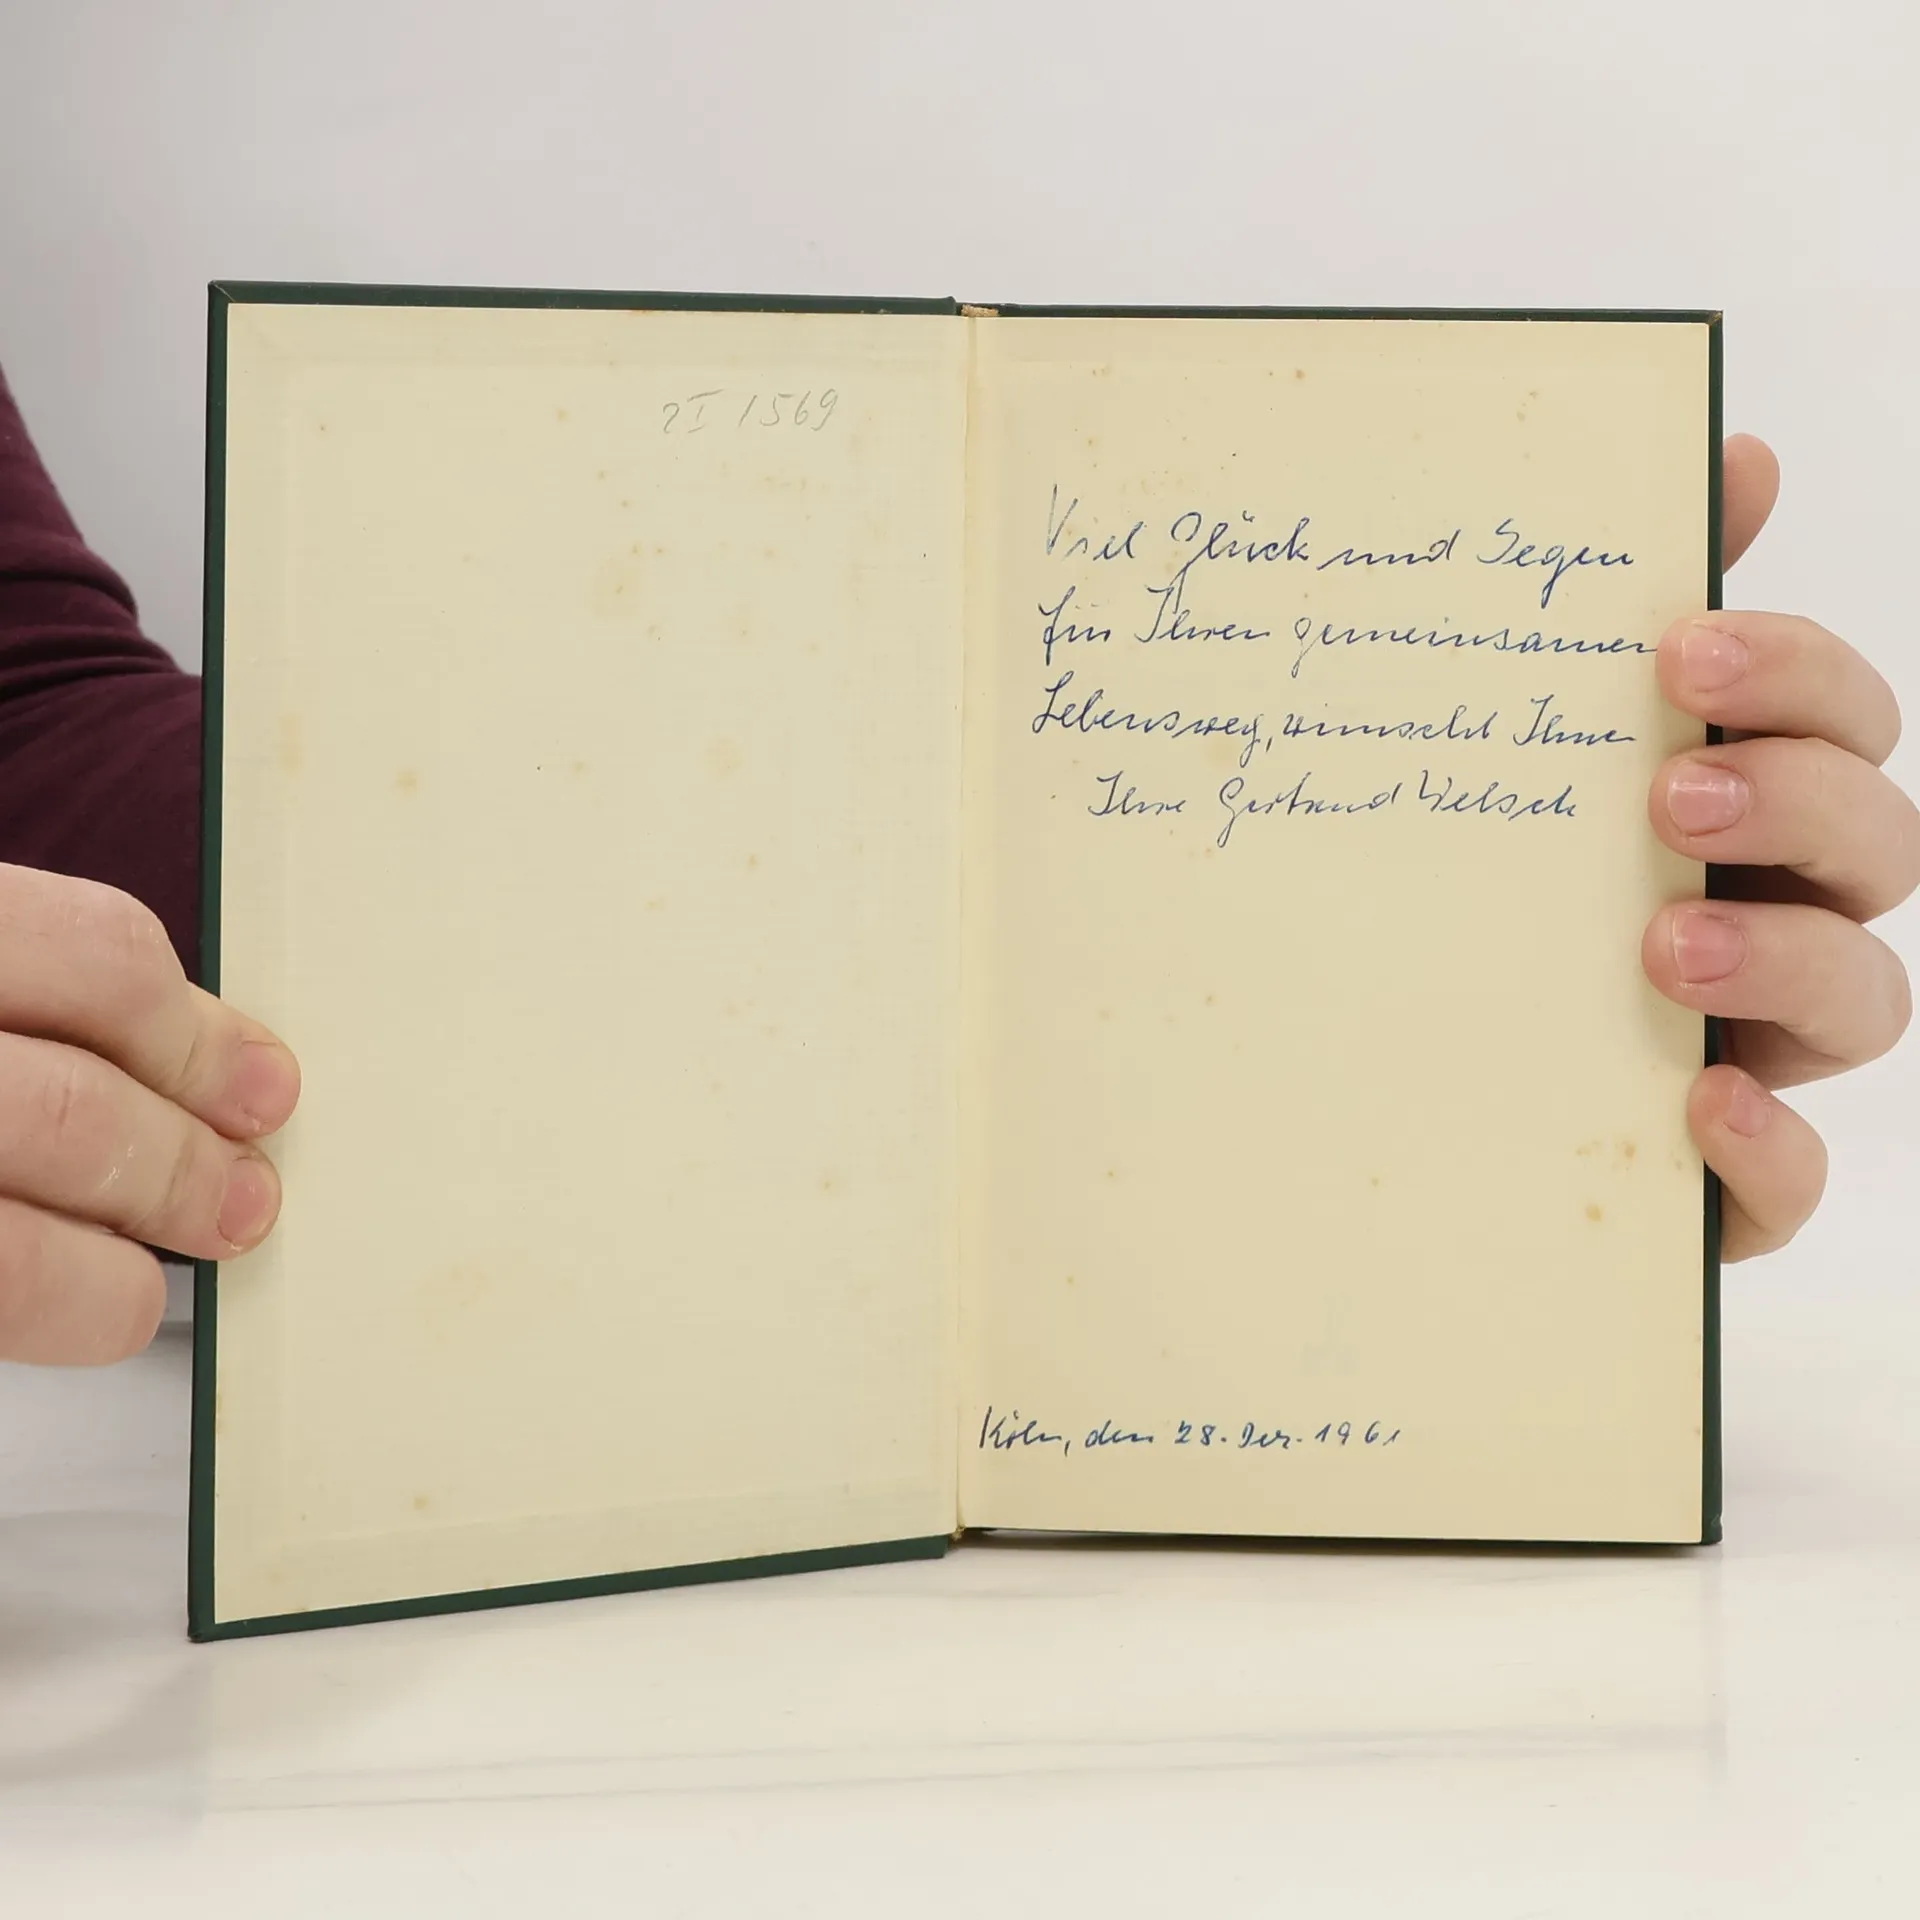 2I 1569
Viel Glück und Segen
für Ihren gemeinsamen
Lebensweg, wünscht Ihnen
Ihre Gertraud Welsch
Köln, den 28. Dez. 1961